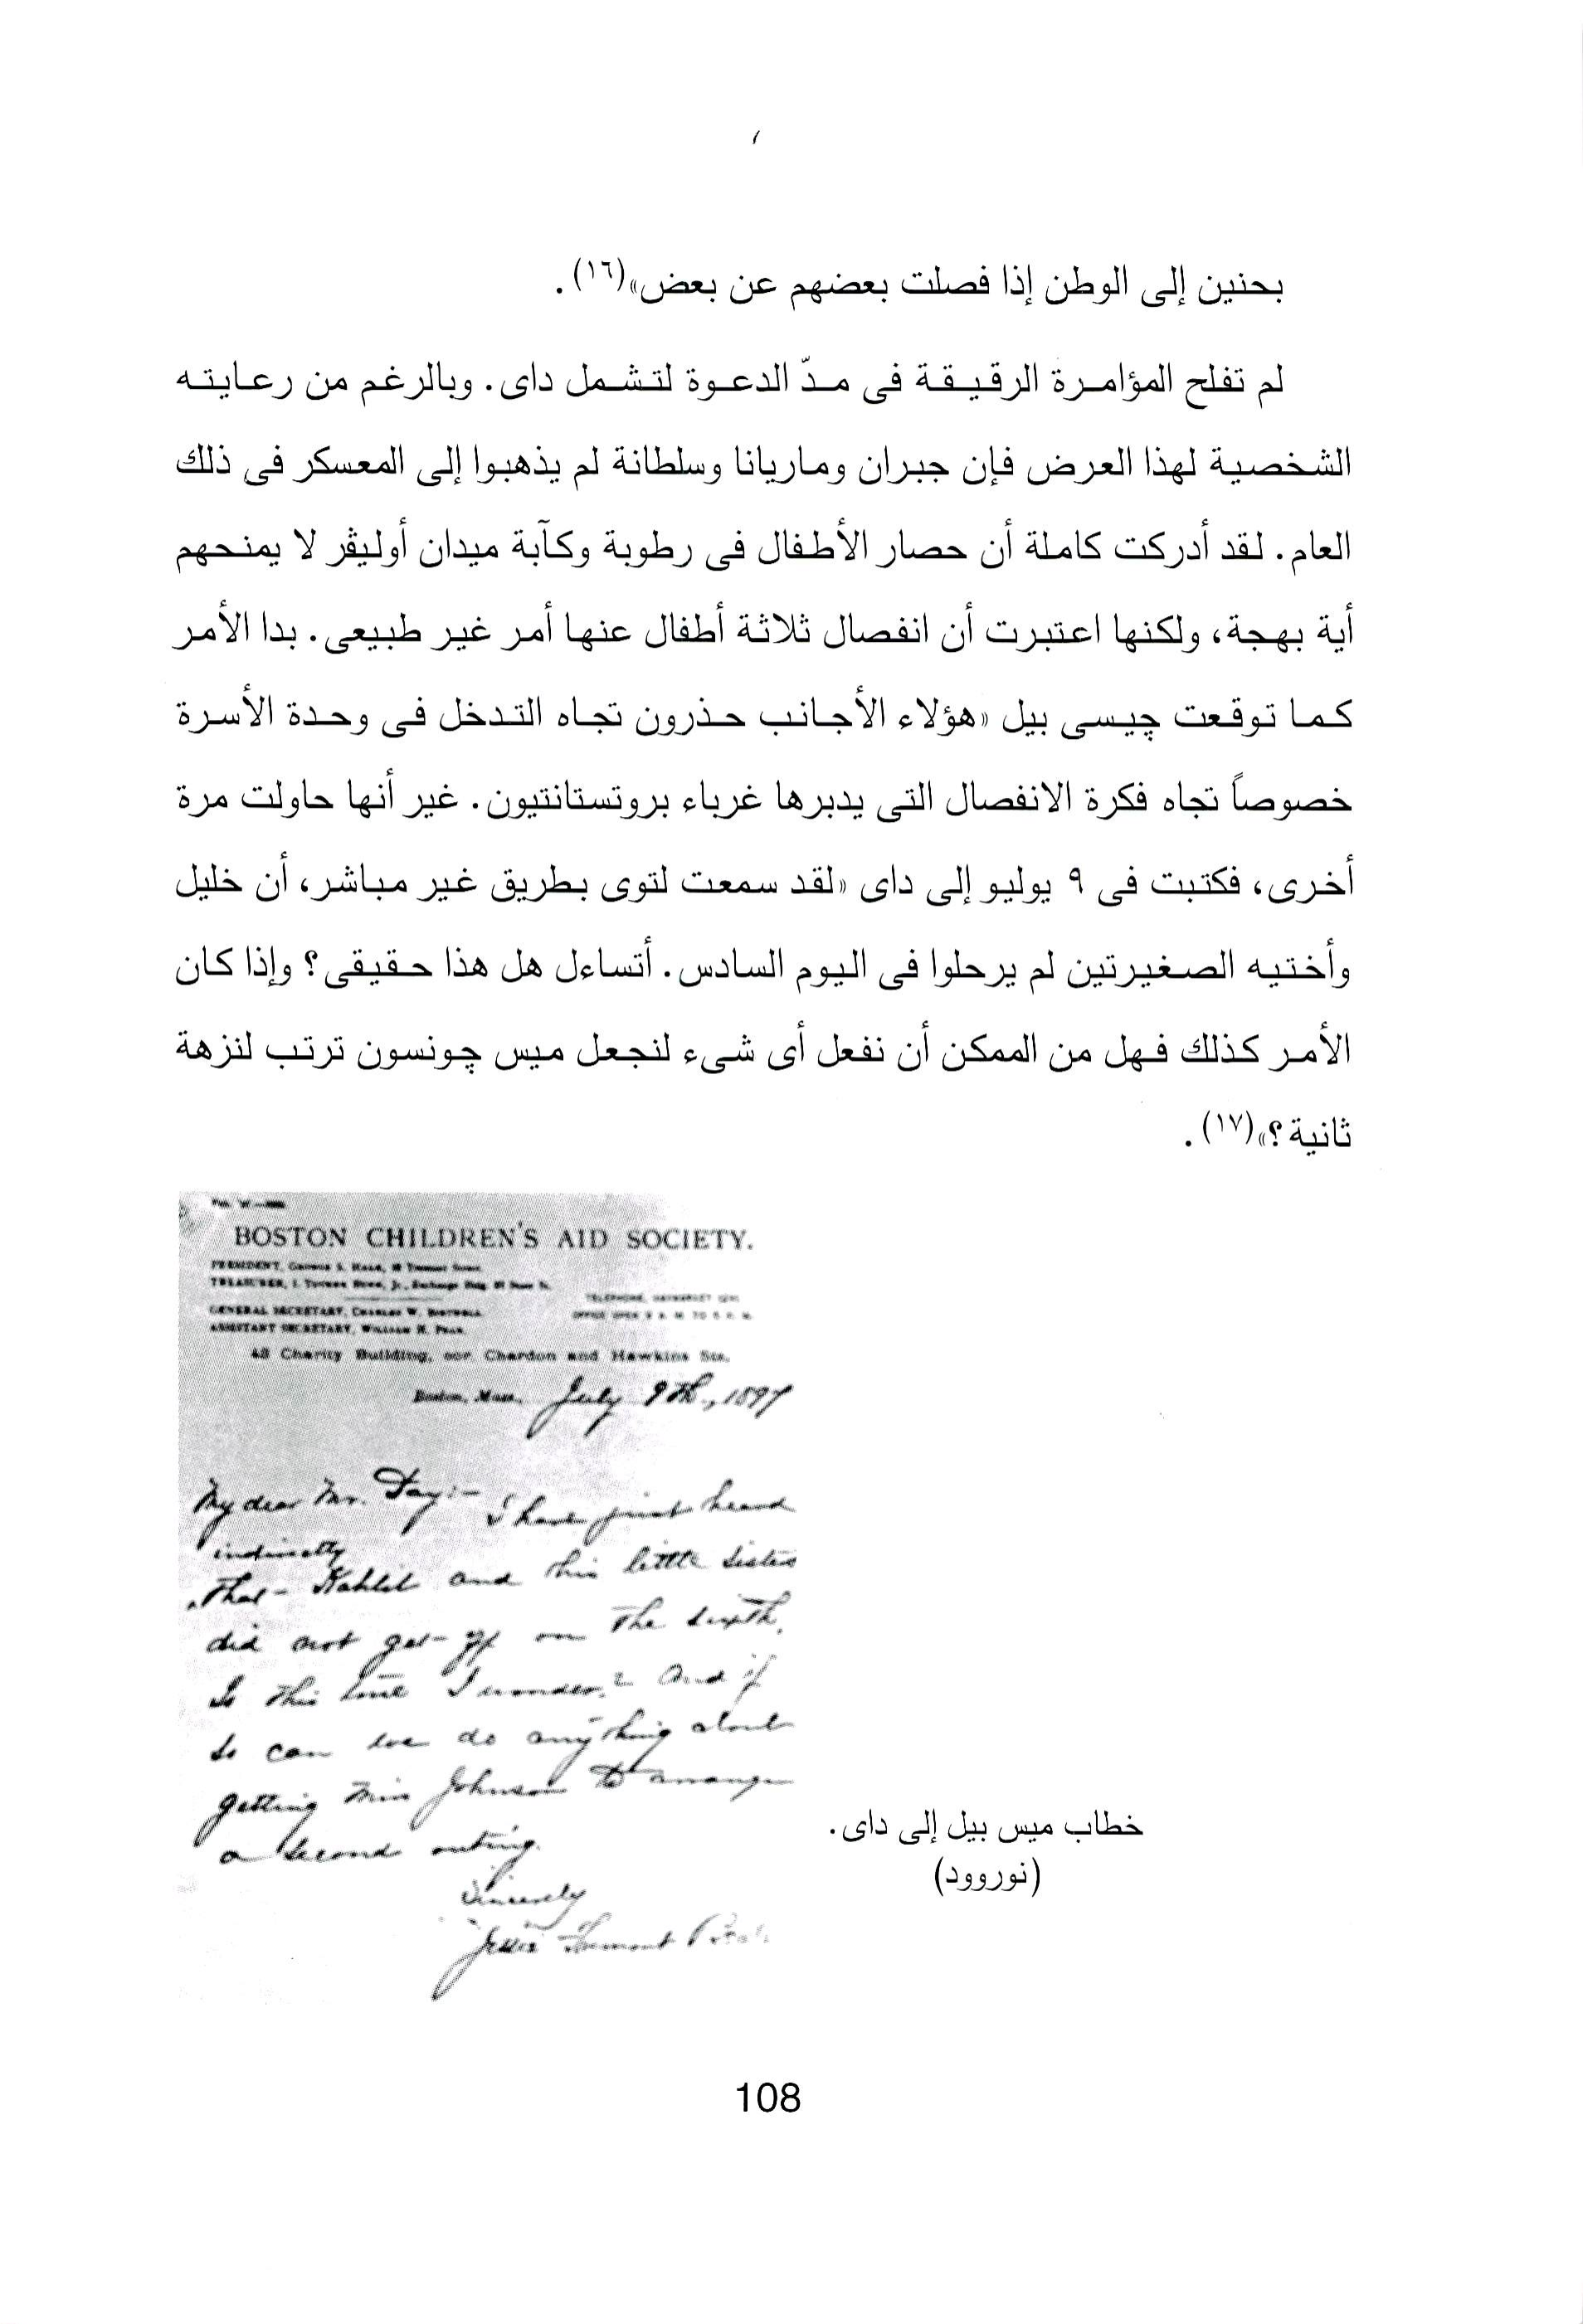 بحنين إلى الوطن إذا فصلت بعضهم عن بعض»(١٦).
لم تفلح المؤامرة الرقيقة فى مدّ الدعوة لتشمل داى. وبالرغم من رعايته
الشخصية لهذا العرض فإن جبران وماريانا وسلطانة لم يذهبوا إلى المعسكر فى ذلك
العام. لقد أدركت كاملة أن حصار الأطفال فى رطوبة وكآبة ميدان أوليڤر لا يمنحهم
أية بهجة، ولكنها اعتبرت أن انفصال ثلاثة أطفال عنها أمر غير طبيعى. بدا الأمر
كما توقعت چيسى بيل «هؤلاء الأجانب حذرون تجاه التدخل فى وحدة الأسرة
خصوصاً تجاه فكرة الانفصال التى يدبرها غرباء بروتستانتيون. غير أنها حاولت مرة
أخرى، فكتبت فى ٩ يوليو إلى داى «لقد سمعت لتوى بطريق غير مباشر، أن خليل
وأختيه الصغيرتين لم يرحلوا فى اليوم السادس. أتساءل هل هذا حقيقى؟ وإذا كان
الأمر كذلك فهل من الممكن أن نفعل أى شىء لنجعل ميس چونسون ترتب لنزهة
ثانية؟»(١٧).
BOSTON CHILDREN'S AID SOCIETY.
PRESIDENT,
TREASURER,
GENERAL SECRETARY, CHARLES W.
ASSISTANT SECRETARY, WILLIAM H.
43 Charity Building, cor. Chardon and Hawkins Sts.
Boston, Mass. July 9th., 1897
My dear Mr. Day:- I have just heard
indirectly
that Kahlil and his little sisters
did not get off on the sixth.
Is this true I wonder? And if
so can we do anything about
getting Miss Johnson to arrange
a second outing.
Sincerely
Jessie Fremont
خطاب ميس بيل إلى داى.
(نوروود)
108